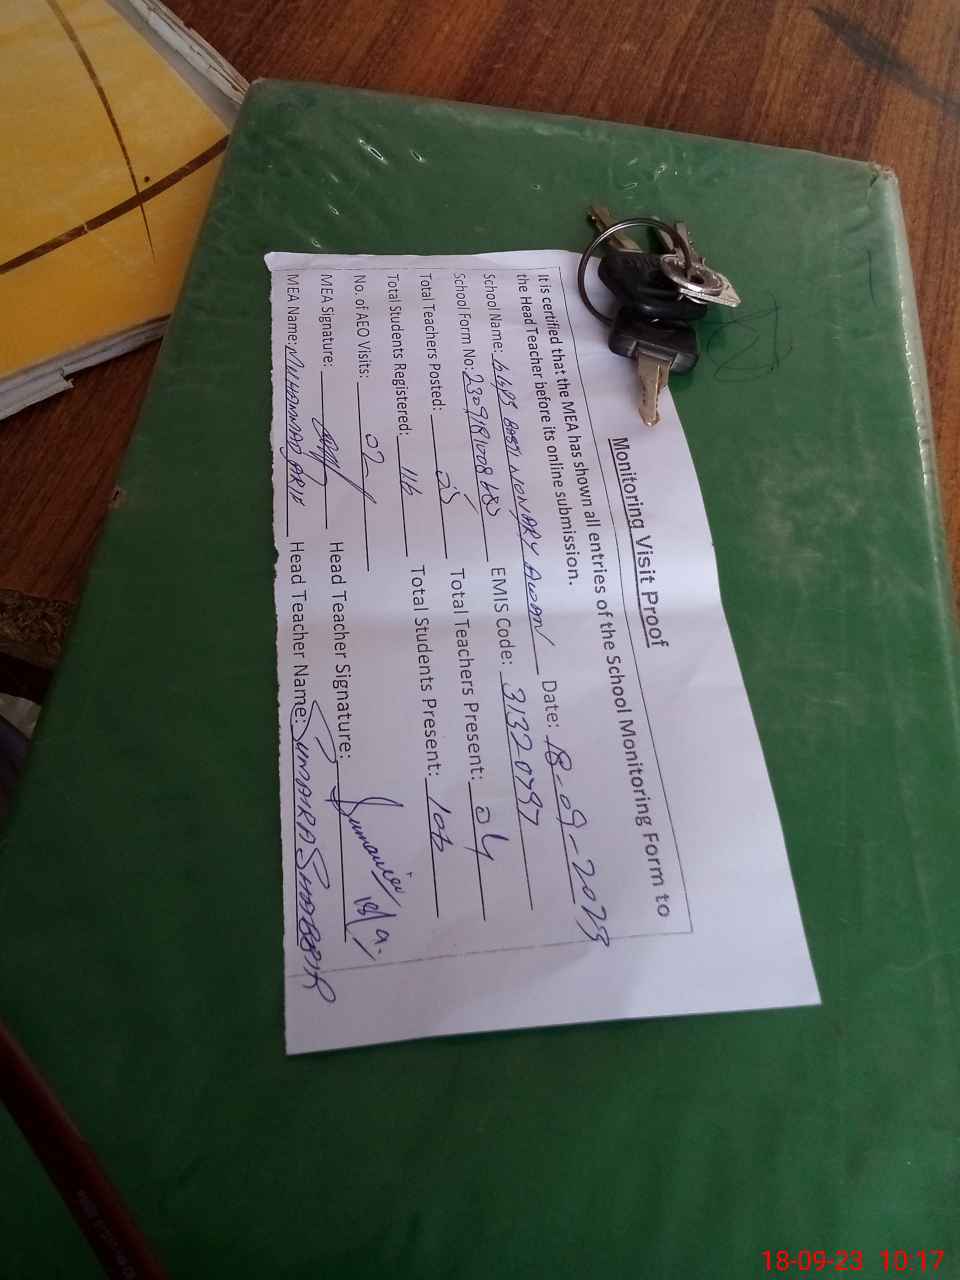 Monitoring Visit Proof
It is certified that the MEA has shown all entries of the School Monitoring Form to
the Head Teacher before its online submission.
School Name: GGPS BASTI NONARY AWAN Date: 18-09-2023
School Form No: EMIS Code: 31320797
Total Teachers Posted: 05 Total Teachers Present: 04
Total Students Registered: 116 Total Students Present: 106
No. of AEO Visits: 02
MEA Signature: Head Teacher Signature: 18/9.
MEA Name: MUHAMMAD ARIF Head Teacher Name: SUMAIRA SHABBIR
18-09-23 10:17